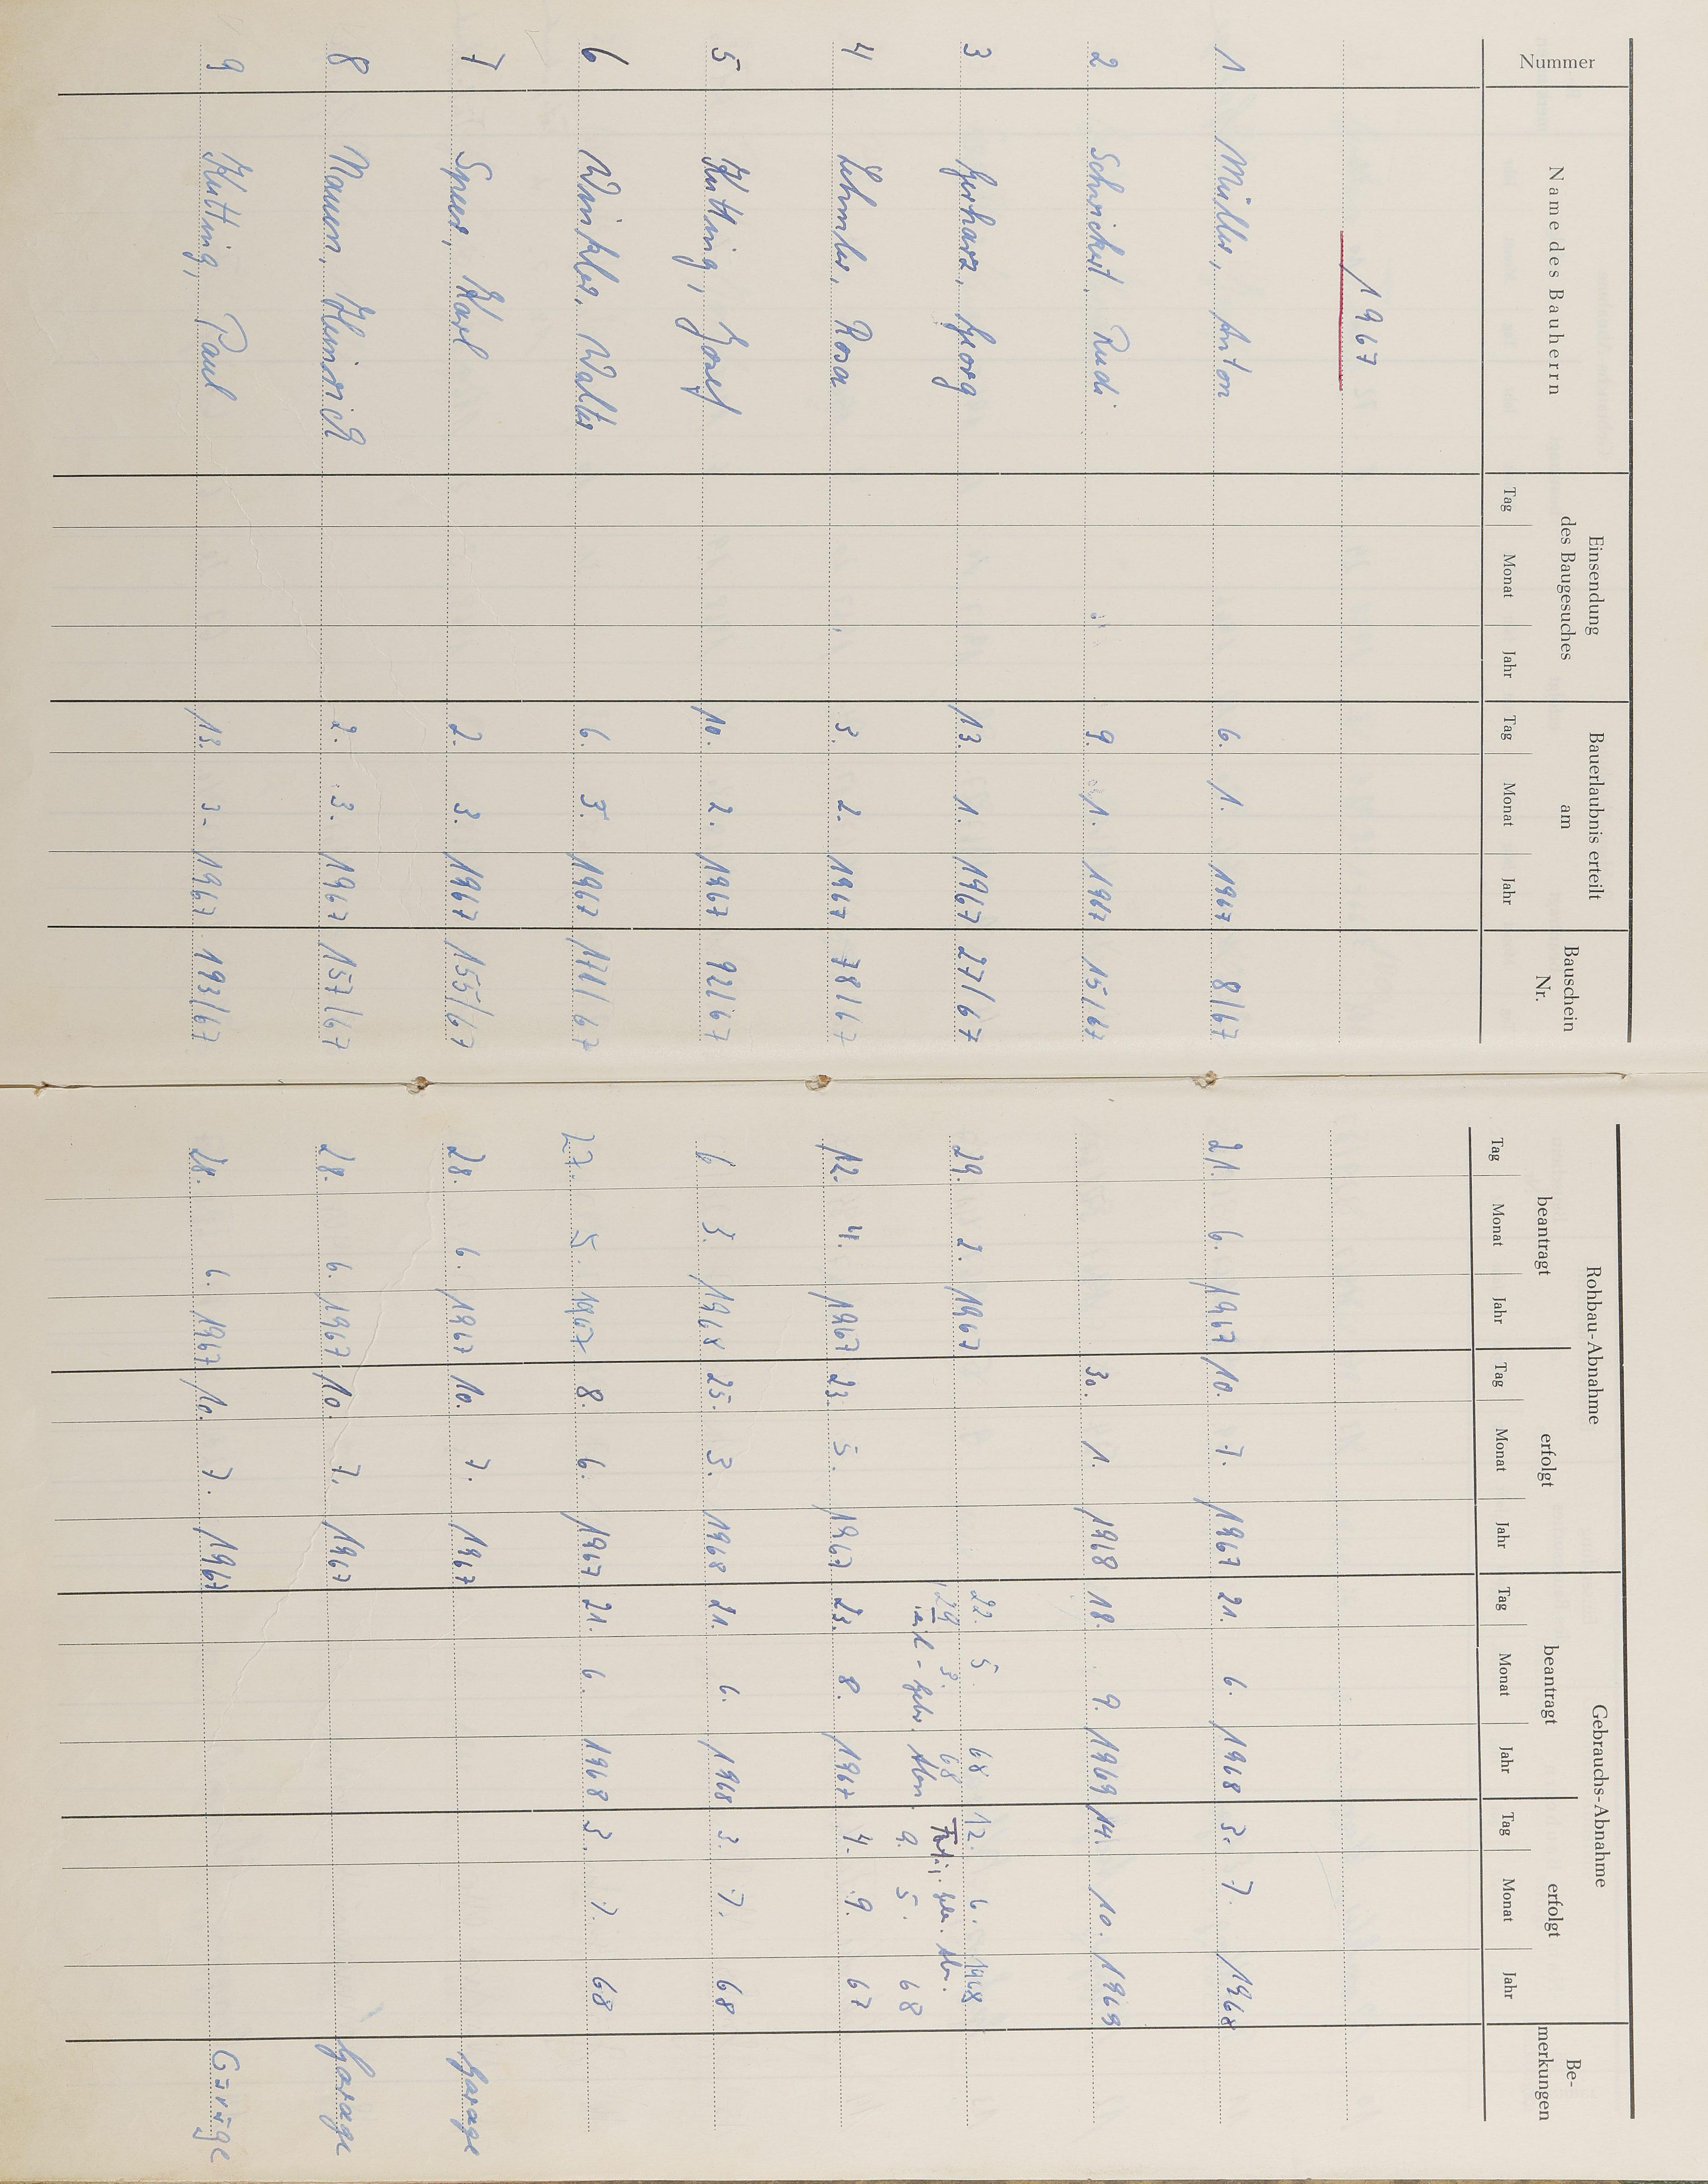 Nummer
Name des Bauherrn
Einsendung
des Baugesuches
Tag Monat Jahr
Bauerlaubnis erteilt
am
Tag Monat Jahr
Bauschein
Nr.
Rohbau-Abnahme
beantragt erfolgt
Tag Monat Jahr Tag Monat Jahr
Gebrauchs-Abnahme
beantragt erfolgt
Tag Monat Jahr Tag Monat Jahr
Be-
merkungen
1967
1 Müller, Anton 6. 1. 1967 8/67 21. 6. 1967 10. 7. 1967 21. 6. 1968 3. 7. 1968
2 Schrickel, Rudi 9. 1. 1967 15/67 30. 1. 1968 18. 9. 1969 14. 10. 1969
3 Gerharz, Georg 13. 1. 1967 27/67 29. 2. 1967 22. 5. 68 12. 6. 1968
29. 3. 68
Gebr. Abn. 9. 5. 68
4 Lehmler, Rosa 3. 2. 1967 78/67 12. 4. 1967 23. 5. 1967 23. 8. 1967 4. 9. 67
5 Hutting, Josef 10. 2. 1967 92/67 6 3. 1968 25. 3. 1968 21. 6. 1968 3. 7. 68
6 Winkler, Walter 6. 3. 1967 171/67 27. 5. 1967 8. 6. 1967 21. 6. 1968 3. 7. 68
7 Spier, Karl 2. 3. 1967 155/67 28. 6. 1967 10. 7. 1967 Garage
8 Nauen, Heinrich 2. 3. 1967 157/67 28. 6. 1967 10. 7. 1967 Garage
9 Hutting, Paul 13. 3. 1967 193/67 28. 6. 1967 10. 7. 1967 Garage